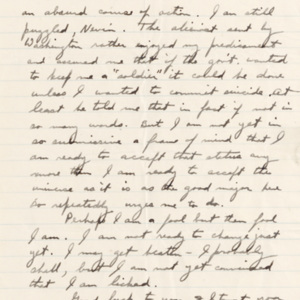 an absurd course of action. I am still
puzzled, Nevin. The alienist sent by
Washington rather enjoyed my predicament
and assured me that if the gov't. wanted
to keep me a "soldier" it could be done
unless I wanted to commit suicide. At
least he told me that in fact if not in
so many words. But I am not yet in
so submissive a frame of mind that I
am ready to accept that status any
more than I am ready to accept the
universe as it is as the good major here
so repeatedly urges me to do.
Perhaps I am a fool but then fool
I am. I am not ready to change just
yet. I may get beaten - I probably
shall, but I am not yet convinced
that I am licked.
Good luck to you